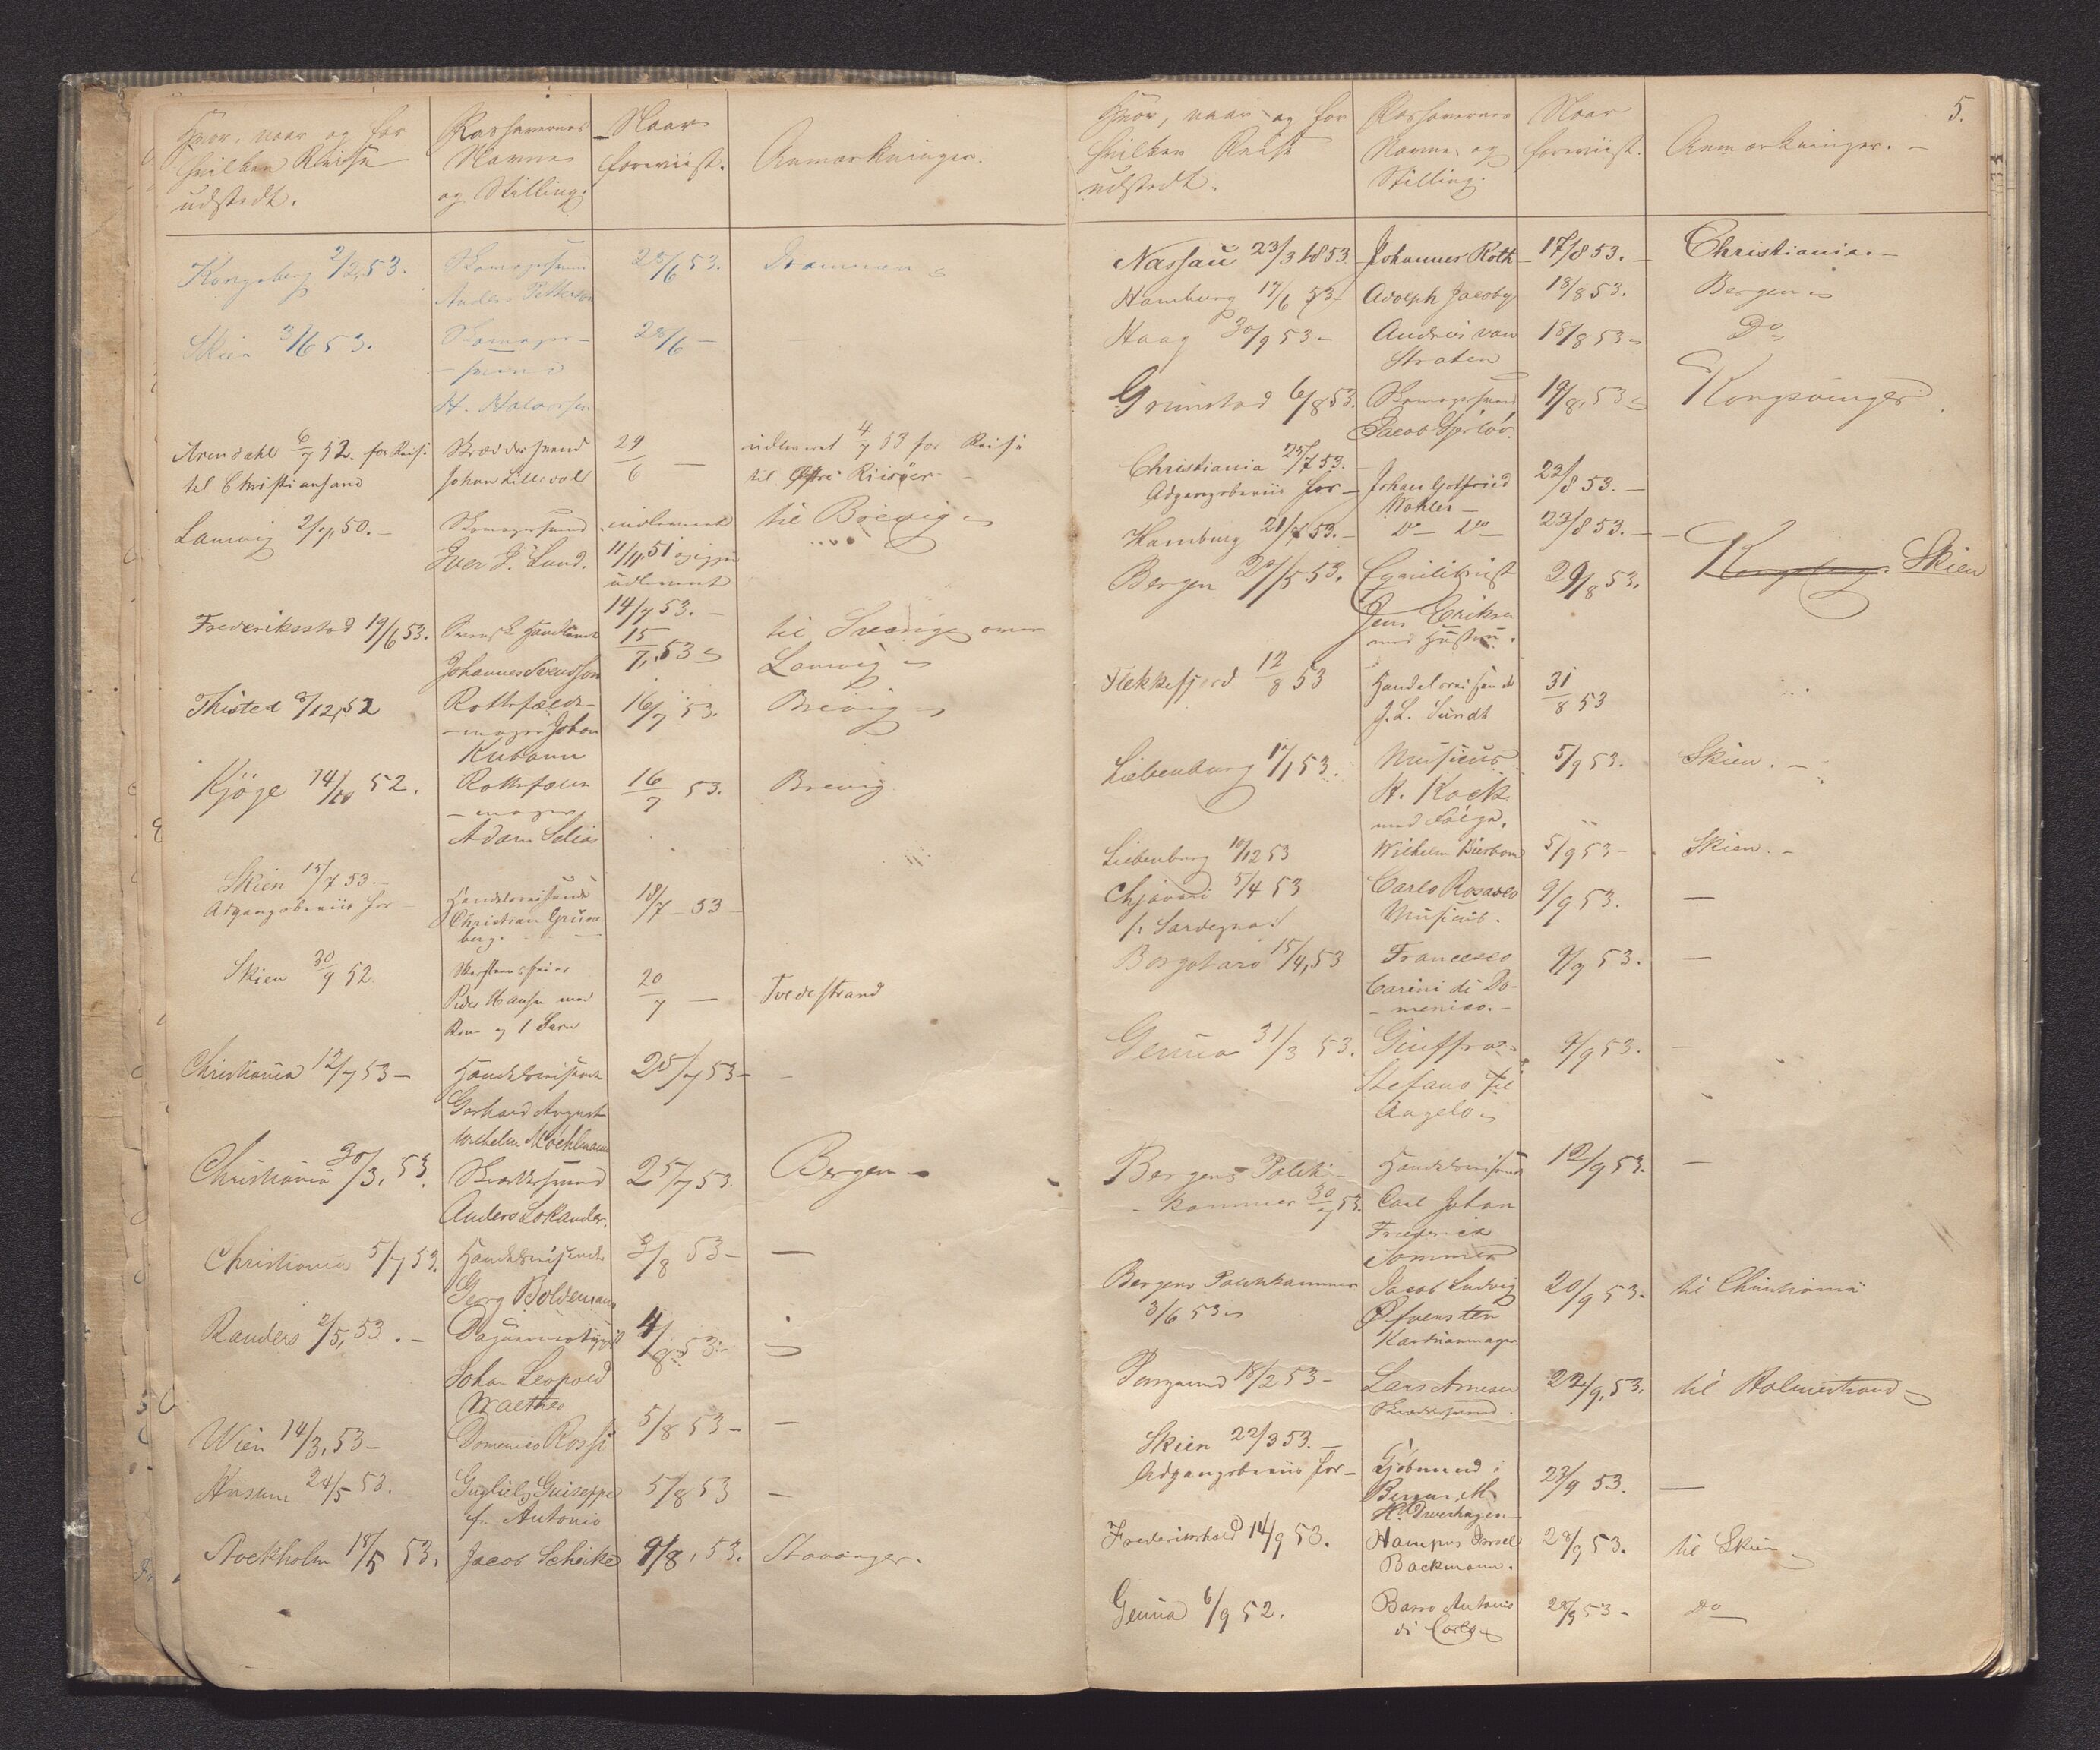 Hvor, naar og for
hvilken Reise
udstedt.
Passhavernes
Navne
og Stilling.
Naar
foreviist.
Anmærkninger.
Kongsberg 2/2 53.
Skomagersvend
Anders Petterson
28/6 53.
Drammen
Skien 3/6 53.
Skomager-
-svend
H. Halvorsen
28/6 –
Arendahl 6/7 52 for Reise
til Christiansand
Skræddersvend
Johan Lillevol
29/6 –
udleveret 4/7 53 for Reise
til Østre Riisöer
Laurvig 2/7, 50. –
Skomagersvend
Iver J. Lund.
indleveret
11/11, 51 og igjen
udleveret
14/7 53. –
til Brevig
Frederiksstad 19/6 53.
Svensk
Johannes Svendsson
15/7, 53
til Sverige over
Laurvig
Thisted 8/12, 52
Rottefælde-
-mager Johan
16/7 53.
Brevig
Kjöge 14/10 52.
Rottefælde
-mager
Adam
16/7 53.
Brevig
Skien 15/7 53 –
Adgangsbeviis for –
Handelsreisende
Christian Grüne-
berg.
18/7 – 53 –
Skien 30/9 52
Peder Hansen med
Kone og 1 Barn
20/7 –
Tvedestrand
Christiania 12/7 53 –
Handelsreisende
Gerhard August
Wilhelm Moehlmann
25/7 53 –
–
Christiania 30/3, 53.
Skræddersvend
Anders Lokander.
25/7 53.
Bergen –
Christiania 5/7 53.
Handelsreisende
Georg Boldemann
3/8 53 –
–
Randers 2/5, 53. –
Daguerreotypist
Johan Leopold
Walther
4/8 53 –
Wien 14/3, 53 –
Domenico Rossi
5/8 53 –
–
Husum 24/5 53.
Gugliel, Guiseppe
f. Antonio
5/8 53
–
Stockholm 18/5 53.
Jacob Scheike
9/8, 53.
Stavanger.
5.
Hvor, naar og for
hvilken Reise
udstedt.
Passhavernes
Navne og
Stilling.
Naar
foreviist.
Anmærkninger. –
Nassau 23/3 1853.
Johannes Roth
17/8 53. –
Christiania. –
Hamburg 17/6 53 –
Adolph Jacoby
18/8 53.
Bergen
Haag 30/9 53 –
Andries van
Straten
18/8 53
Do
Grimstad 6/8 53.
Skomagersvend
Jacob Gjerlöv.
19/8, 53
Kongsvinger
Christiania 25/7 53. –
Adgangsbeviis for –
Johan Gotfried
Wohler –
22/8 53. –
Hamburg 21/7 53. –
Do – Do –
23/8 53. –
Bergen 20/5 53.
Eqvilibrist
Jens Eriksen
med Hustru.
29/8 53.
Kongsberg. Skien
Flekkefjord 12/8 53
Handelsreisende
J. L. Sundt
31/8 53
Liebenburg 1/1 53.
Musicus
H. Kock
med Følge.
5/9 53.
Skien. –
Liebenburg 10/12 53
Wilhelm
5/9 53 –
Skien. –
Chjavari 5/4 53
/: Sardegna :/
Carlo Rosasco
Musicus.
9/9 53.
–
Borgotaro 15/4, 53
Francesco
Carini di Do-
-menico. –
9/9 53.
–
Genua 31/3 53.
Giuffra
Stefano fil
Angelo
9/9 53.
–
Bergens Politi-
-kammer 30/7 53.
Handelsreisende
Carl Johan
Frederick
Sommer
12/9 53.
–
Bergens Politikammer
3/6 53
Jacob Ludvig
Øfversten
20/9 53 –
til Christiania
Porsgrund 18/2 53 –
Lars Arnesen
Skræddersvend.
22/9, 53.
til Holmestrand
Skien 22/3 53. –
Adgangsbeviis for –
Kjöbmand i
Bergen, M.
23/9 53.
–
Frederikshald 14/9 53.
Hampus Israel
Backmann.
28/9 53.
til Skien
Genua 6/9 52.
Basso Antonio
di Carlo
28/9 53 –
Do